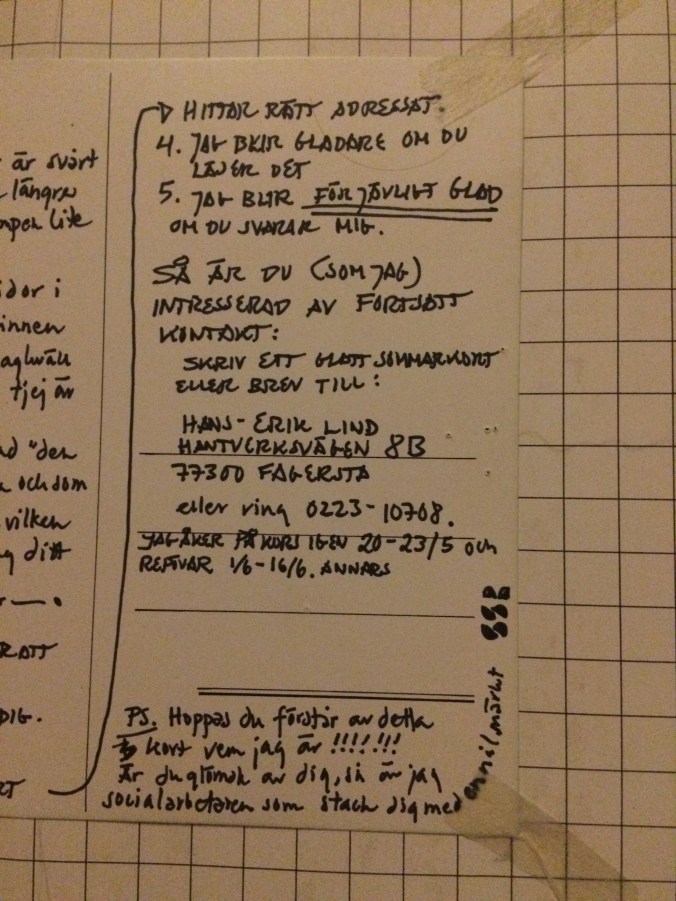 är svårt
längre
lite
dor i
innen
tjej är
"den
och som
vilken
ditt
RÄTT
DIG.
HITTAR RÄTT ADRESSAT.
4. JAG BLIR GLADARE OM DU
LÄSER DET
5. JAG BLIR FÖR JÄVLIGT GLAD
OM DU SVARAR MIG.
SÅ ÄR DU (SOM JAG)
INTRESSERAD AV FORTSATT
KONTAKT:
SKRIV ETT GLATT SOMMARKORT
ELLER BREV TILL:
HANS-ERIK LIND
HANTVERKSVÄGEN 8B
77300 FAGERSTA
eller ring 0223-10708.
JAG ÅKER PÅ KURS IGEN 20-23/5 och
1/6-16/6. ANNARS
PS. Hoppas du förstår av detta
kort vem jag är !!!!!!!
Är du glömsk av dig, så är jag
socialarbetaren som stack dig med
en nål märkt SSB